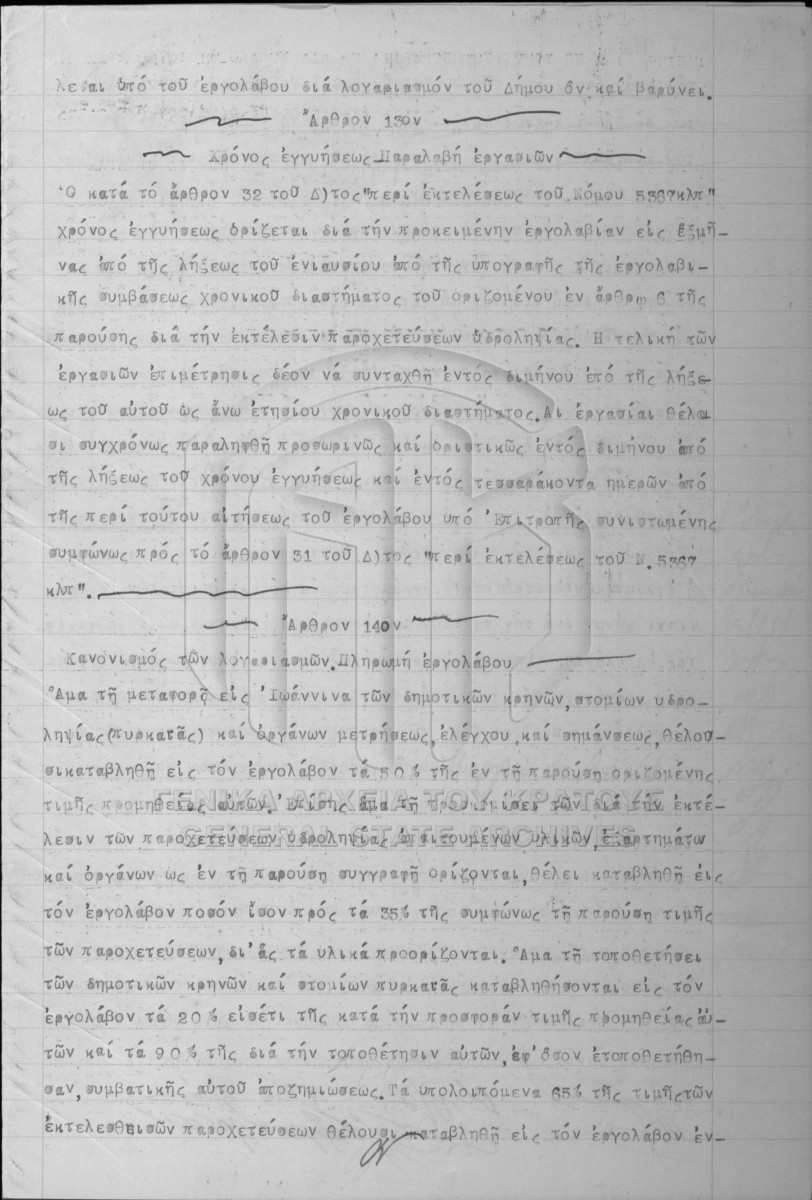 λεῖαι ὑπό τοῦ ἐργολάβου διά λογαριασμόν τοῦ Δήμου ὅν καί βαρύνει.
Ἄρθρον 13ον
Χρόνος ἐγγυήσεως Παραλαβή ἐργασιῶν
Ὁ κατά τό ἄρθρον 32 τοῦ Δ)τος "περί ἐκτελέσεως τοῦ Νόμου 5367 κλπ"
χρόνος ἐγγυήσεως ὁρίζεται διά τήν προκειμένην ἐργολαβίαν εἰς ἑξμῆ-
νας ἀπό τῆς λήξεως τοῦ ἐνιαυσίου ἀπό τῆς υπογραφῆς τῆς ἐργολαβι-
κῆς συμβάσεως χρονικοῦ διαστήματος τοῦ οριζομένου ἐν ἄρθρῳ 6 τῆς
παρούσης διά τήν ἐκτέλεσιν παροχετεύσεων ὑδροληψίας. Η τελική τῶν
ἐργασιῶν ἐπιμέτρησις δέον νά συνταχθῇ ἐντός διμήνου ἀπό τῆς λήξε-
ως τοῦ αὐτοῦ ὡς ἄνω ἐτησίου χρονικοῦ διαστήματος. Αι ἐργασίαι θέλου
σι συγχρόνως παραληφθῇ προσωρινῶς καί ὁριστικῶς ἐντός διμήνου ἀπό
τῆς λήξεως τοῦ χρόνου ἐγγυήσεως καί ἐντός τεσσαράκοντα ημερῶν ἀπό
τῆς περί τούτου αἰτήσεως τοῦ ἐργολάβου υπό Ἐπιτροπῆς συνιστωμένης
συμφώνως πρός τό ἄρθρον 31 τοῦ Δ)τος "περί ἐκτελέσεως τοῦ Ν. 5367
κλπ".
Ἄρθρον 14ον
Κανονισμός τῶν λογαριασμῶν. Πληρωμή ἐργολάβου
Ἅμα τῇ μεταφορᾷ εἰς Ἰωάννινα τῶν δημοτικῶν κρηνῶν, στομίων υδρο-
ληψίας (πυρκαιᾶς) καί ὀργάνων μετρήσεως, ἐλέγχου καί σημάνσεως, θέλου-
σι καταβληθῇ εἰς τόν ἐργολάβον τά 50% τῆς ἐν τῇ παρούσῃ οριζομένης
τιμῆς προμηθείας αὐτῶν. Ἐπίσης ἅμα τῇ προσκομίσει τῶν διά τήν ἐκτέ-
λεσιν τῶν παροχετεύσεων ὑδροληψίας ἀπαιτουμένων υλικῶν, ἐξαρτημάτων
καί ὀργάνων ὡς ἐν τῇ παρούσῃ συγγραφῇ ορίζονται, θέλει καταβληθῇ εἰς
τόν ἐργολάβον ποσόν ἴσον πρός τά 35% τῆς συμφώνως τῇ παρούσῃ τιμῆς
τῶν παροχετεύσεων, δι'ἅς τά υλικά προορίζονται. Ἅμα τῇ τοποθετήσει
τῶν δημοτικῶν κρηνῶν καί στομίων πυρκαιᾶς καταβληθήσονται εἰς τόν
ἐργολάβον τά 20% εἰσέτι τῆς κατά τήν προσφοράν τιμῆς προμηθείας αὐ-
τῶν καί τά 90% τῆς διά τήν τοποθέτησιν αὐτῶν, ἐφ'ὅσον ἐτοποθετήθη-
σαν, συμβατικῆς αὐτοῦ ἀποζημιώσεως. Τά υπολοιπόμενα 65% τῆς τιμῆς τῶν
ἐκτελεσθεισῶν παροχετεύσεων θέλουσι καταβληθῇ εἰς τόν ἐργολάβον ἐν-
ΓΕΝΙΚΑ ΑΡΧΕΙΑ ΤΟΥ ΚΡΑΤΟΥΣ
GENERAL STATE ARCHIVES